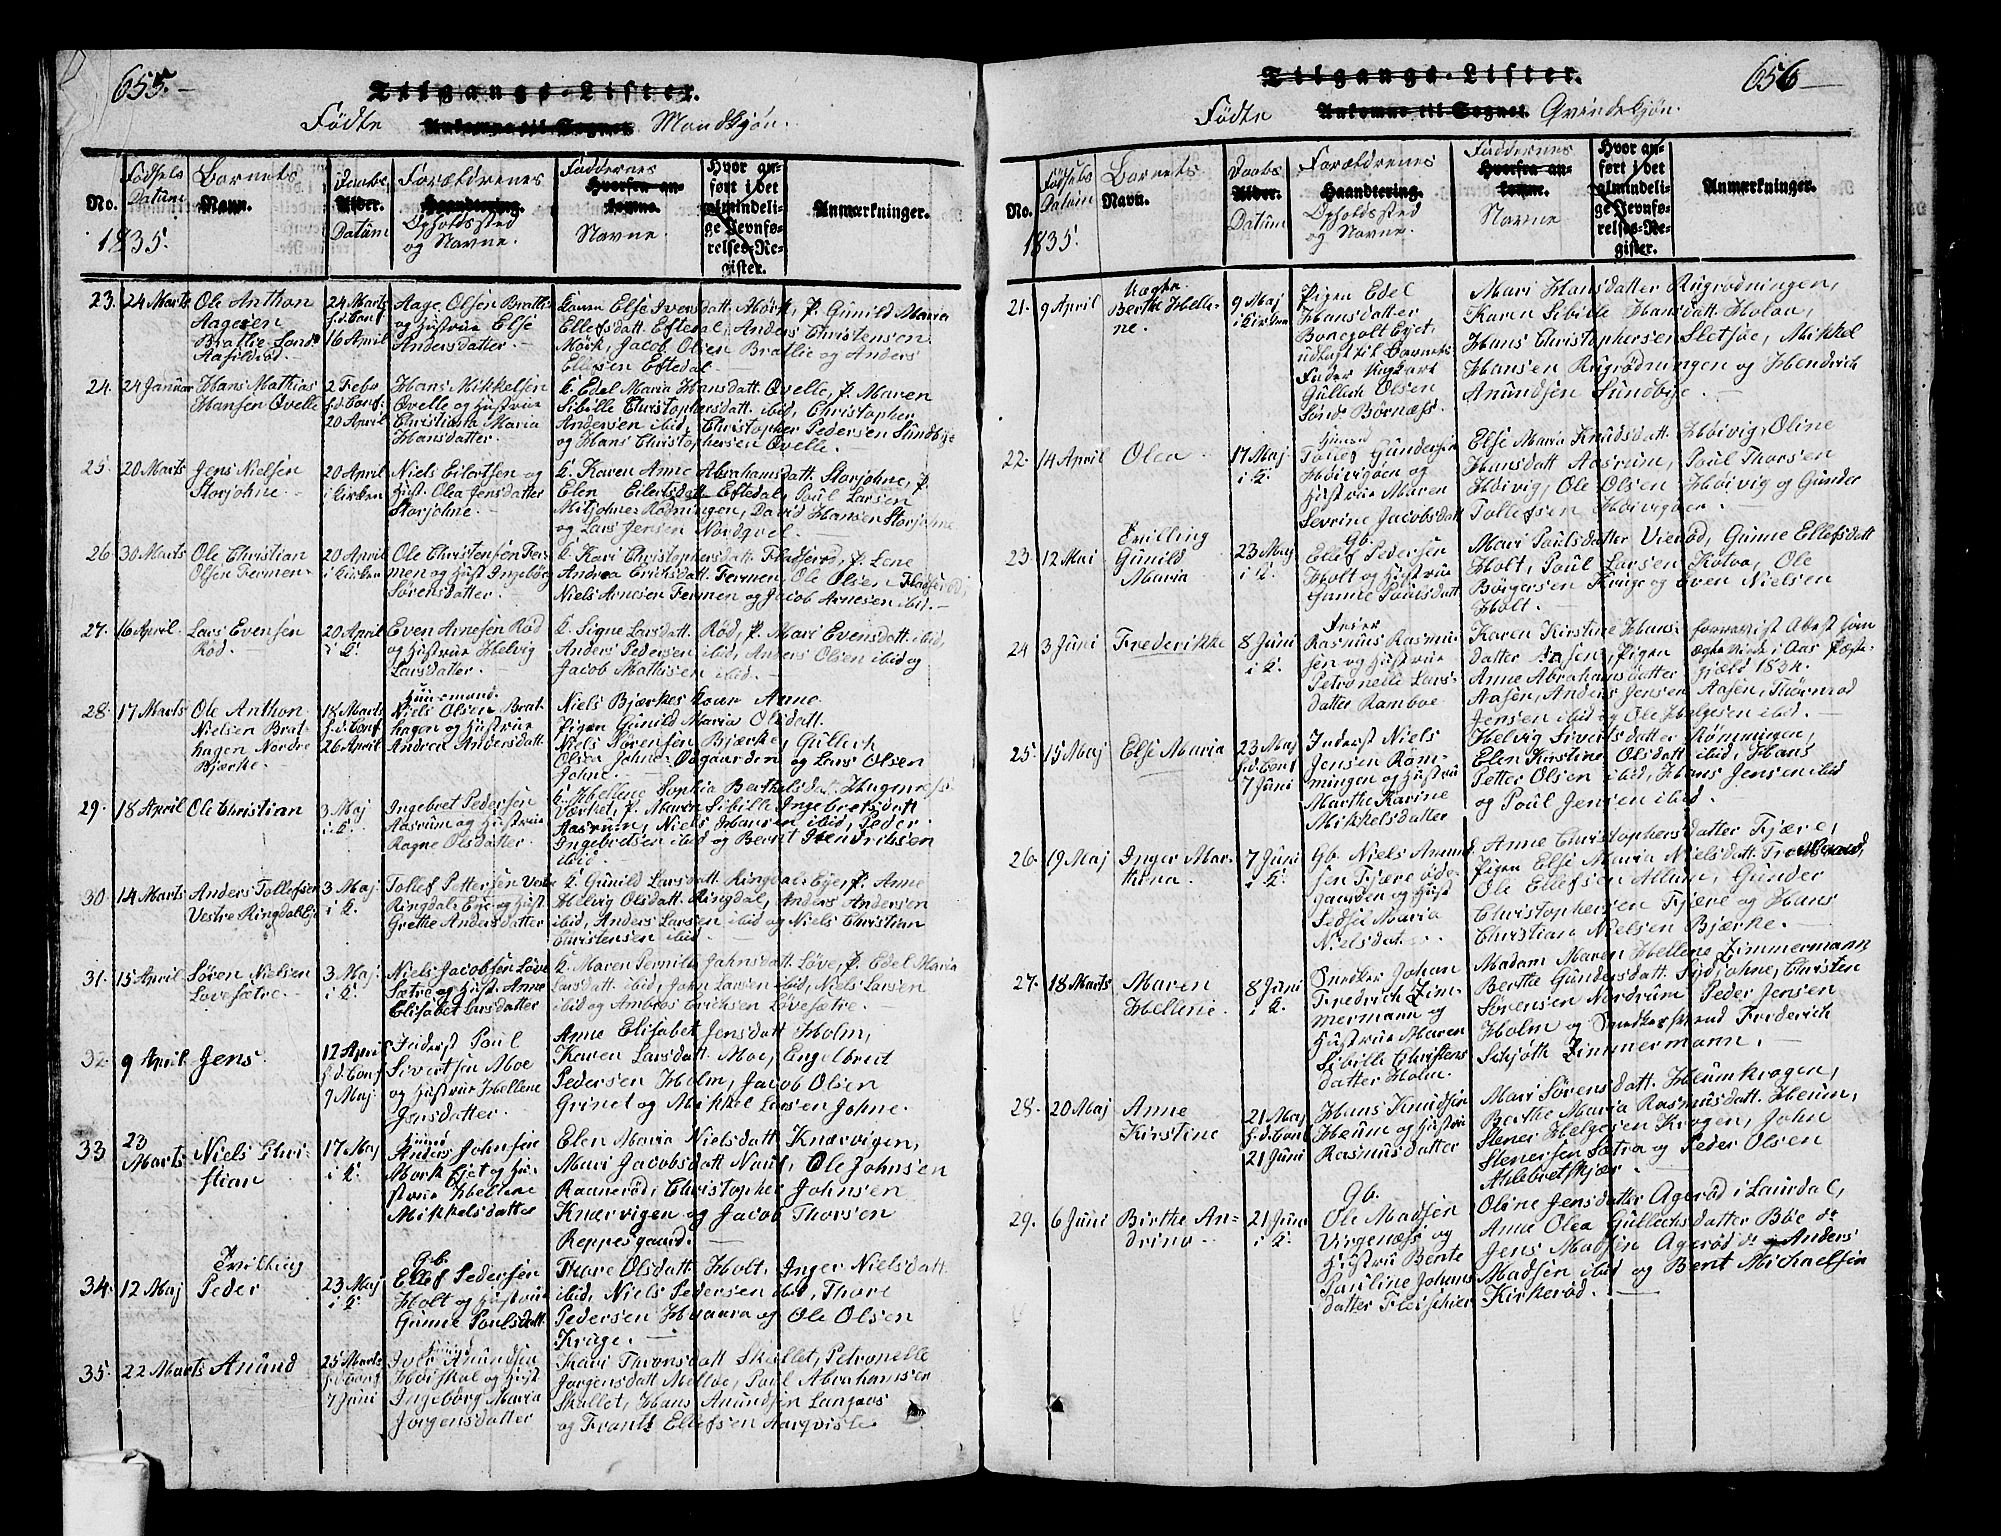 655.
Tilgangs-Lister.
Fødte Ankomne til Sognet Mandkjøn.
No. 1835.
Fødsels Datum
Barnets Navn.
Daabs Alder. Datum
Forældrenes Haandtering. Opholdssted og Navne.
Faddernes Hvorfra ankomne. Navne.
Hvor anført i det almindelige Jevnførelses-Register.
Anmærkninger.
23. 24 Marts
Ole Anthon
Aagesen
24 Marts
h.d. Conf
16 April
Aage Olsen
og Hustrue Else
Andersdatter.
Else Iversdatt. Mørk, P. Gunild Maria
Ellefsdatt. Eftedal, Anders Christensen
Mørk, Jacob Olsen Bratlie og Anders
Ellefsen Eftedal.
24. 24 Januar
Hans Mathias
Hansen Ovelle
2 Febr
h.d. Conf.
20 April
Hans Mikkelsen
Ovelle og Hustrue
Christiana Maria
Hansdatter.
k. Edel Maria Hansdatt. Ovelle, P. Maren
Sibille Christophersdatt. ibid, Christopher
Andersen ibid, Christopher Pedersen Sundbye
og Hans Christophersen Ovelle.
25. 20 Marts
Jens Nielsen
Storjohne.
20 April
i Kirken
Niels Eilertsen og
Hust. Olea Jensdatter
Storjohne.
k. Karen Anne Abrahamsdatt. Storjohne, P.
Elen Eilertsdatt. Eftedal, Poul Larsen
Mitjohne Rødningen, David Hansen Storjohne
og Lars Jensen Nordgvel.
26 30 Marts
Ole Christian
Olsen Fermen
20 April
i Kirken
Ole Christensen Fermen
og Hust Ingebor
Sørensdatter.
k. Kari Christophersdatt. Fladserød, P. Lene
Andrea Erichsdatt. Fermen, Ole Olsen Fladserød,
Niels Arnesen Fermen og Jacob Arnesen ibid.
27. 16 April.
Lars Evensen
Rød
20 April
i K.
Even Arnesen Rød
og Hustrue Helvig
Larsdatter.
k. Signe Larsdatt. Rød, P. Mari Evensdatt. ibid,
Anders Pedersen ibid, Anders Olsen ibid og
Jacob Mathisen ibid.
28. 17 Marts
Ole Anthon
Nielsen Brathagen
Nordre
Bjerke.
18 Marts
h.d. Conf
26 April
Huusmand.
Niels Olsen Brathagen
og Hustrue
Andrea Andersdatt
Niels Bjerkes kone Anne
Pigen Gunild Maria Olsdatt.
Niels Sørensen Bjerke, Gullech
Olsen Johne Ødgaarden og Lars Olsen
Johne.
29. 18 April
Ole Christian
3 Maj
i K.
Ingebret Pedersen
Aasrum og Hustrue
Ragne Olsdatter.
k. Hellene Sophia Berthelsdatt. Hagnæss
Værket, P. Maren Sibille Ingebretsdatt
Aasrum, Niels Hansen ibid, Peder
Ingebretsen ibid og Bernt Hendriksen
ibid.
30. 14 Marts
Anders Tollefsen
Vestre Ringdals Eje
3 Maj
i K.
Tollef Pettersen Vestre
Ringdals Eje og Hust
Grethe Andersdatter
k. Gunild Larsdatt. Ringdals Eje, P. Anne
Helvig Olsdatt. Ringdal, Anders Andersen
ibid, Anders Larsen ibid og Niels Christian
Christensen ibid.
31. 15 April
Søren Nielsen
Løvesætre.
3 Maj.
i K.
Niels Jacobsen Løve
Sætre og Hust. Anne
Elisabet Larsdatter
k. Maren Pernille Jahnsdatt. Løve, P. Edel Maria
Larsdatt. ibid, John Larsen ibid, Niels Larsen
ibid og Ambros Erichsen Løvesætre.
32. 9 April
Jens.
12 April
h.d. Conf
9 Maj.
Inderst Poul
Sivertsen Moe
og Hustrue Hellene
Jensdatter.
Anne Elisabet Jensdatt. Holm,
Karen Larsdatt. Moe, Engelbret
Pedersen Holm, Jacob Olsen
Grinel og Mikkel Larsen Johne.
33 23 Marts
Niels Christian
17 Maj
i K.
Huusmd
Anders Johnsen
Mork Ejet og Hustrue
Hellene
Mikkelsdatter
Elen Maria Nielsdatt. Knærvigen,
Mari Jacobsdatt. Naut, Ole Johnsen
Raanerød, Christopher Johnsen
Knærvigen og Jacob Thorsen
Reppesgaard.
34. 12 Maj
Tvilling
Peder
23 Maj
i K.
Gb.
Ellef Pedersen
Holt og Hustrue
Gunne Poulsdatt.
Thore Olsdatt. Holt, Inger Nielsdatt.
ibid, Niels Pedersen ibid, Thore
Pedersen Haavra og Ole Olsen
Kruge.
35. 22 Marts
Anund
25 Marts
h.d. Conf
7 Juni
Iver Anundsen
Høiskal og Hust
Ingeborg Maria
Jørgensdatter
Kari Thronsdatt Skallet, Petronelle
Jørgensdatt Melløe, Poul Abrahamsen
Skallet, Hans Anundsen Langaas
og Frants Ellefsen Aarqvisle
656
Tilgangs-Lister.
Fødte Ankomne til Sognet Qvindekjøn.
No. 1835.
Fødsels Datum
Barnets Navn.
Daabs Alder. Datum
Forældrenes Haandtering. Opholdssted og Navne.
Faddernes Hvorfra ankomne. Navne
Hvor anført i det almindelige Jevnførelses-Register.
Anmærkninger.
21. 9 April
Uægte
Berthe Hellene.
9 Maj
i Kirken
Pigen Edel
Hansdatter
Bonegolt Ejet,
udlagt til Barnets
Fader Ungkarl
Gullech Olsen
Søndr Børnæss.
Mari Hansdatter Rugrødningen,
Karen Sibille Hansdatt. Holan,
Hans Christophersen Sletsjøe, Mikkel
Hansen Rugrødningen og Hendrich
Anundsen Sundbye.
22. 14 April
Olea
17 Maj
i K.
Huusmd
Tollef Gundersen
Høivigøen og
Hustrue Maren
Sevrine Jacobsdatt
Else Maria Knudsdatt. Høivig, Oline
Hansdatt Aasrum, Poul Thorsen
Høivig, Ole Olsen Høivig og Gunder
Tollefsen Høivigøer.
23. 12 Mai
Tvilling
Gunild
Maria
23 Maj
i K.
Gb.
Ellef Pedersen
Holt og Hustrue
Gunne Poulsdatt
Mari Poulsdatter Vierød, Gunne Ellefsdatt
Holt, Poul Larsen Kolva, Ole
Børgersen Kruge og Even Nielsen
Holt.
24 3 Juni
Frederikke
8 Juni
i K.
Rasmus Rasmussen
og Hustrue
Petronelle Larsdatter
Ramboe
Karen Kirstine Hansdatter
Aasen, Pigen
Anne Abrahamsdatter
Aasen, Anders Jensen Aasen, Thormod
Jensen ibid og Ole Helgesen ibid.
forrevist Attest som
ægte Viede i Aas Præstegjæld
1834.
25. 15 Maj
Else Maria
23 Maj
h.d. Conf
7 Juni
Inderst Niels
Jensen Rømmingen
og Hustrue
Marthe Karine
Mikkelsdatter
Helvig Sivertsdatter Rømningen,
Elen Kirstine Olsdatt ibid, Hans
Petter Olsen ibid, Hans Jensen ibid
og Poul Jensen ibid.
26. 19 Maj
Inger Marthina.
7 Juni
i K.
Gb. Niels Anundsen
Fjære ødegaarden
og Hust
Sedsel Maria
Nielsdat.
Anne Christophersdatter Fjære,
Pigen Else Maria Nielsdatt.
Ole Ellefsen Allum, Gunder
Christophersen Fjære og Hans
Christian Nielsen Bjerke.
27. 18 Marts
Maren
Hellene.
8 Juni
i K.
Snedker Johan
Fredrich Zimmermann
og
Hustrue Maren
Sibille Christensdatter
Holm.
Madam Maren Hellene Zimmermann
Berthe Gundersdatt. Sydjohne, Christen
Sørensen Nordrum Peder Jensen
Holm og Snedkersvend Frederich
Schjøth Zimmermann.
28. 20 Maj
Anne
Kirstine
21 Maj
h.d. Conf
21 Juni
Hans Knudsen
Heum og Hustrue
Rasmusdatter
Mari Sørensdatt. Heumkragen,
Berthe Maria Rasmusdatt. Heum,
Stener Helgesen Krogen, John
Stenersen Sætra og Peder Olsen
Ahlebretskjær.
29. 6 Juni
Birthe Andrine.
21 Juni
i K.
Gb.
Ole Madsen
Virgenæss og
Hustru Bente
Pauline Johansdatter
Fleischier
Oline Jensdatter Agerød i Laurdal,
Anne Olea Gullechsdatter Bøe do
Jens Madsen Agerød do Anders
Madsen ibid og Bent Michaelsen
Kirkerød.